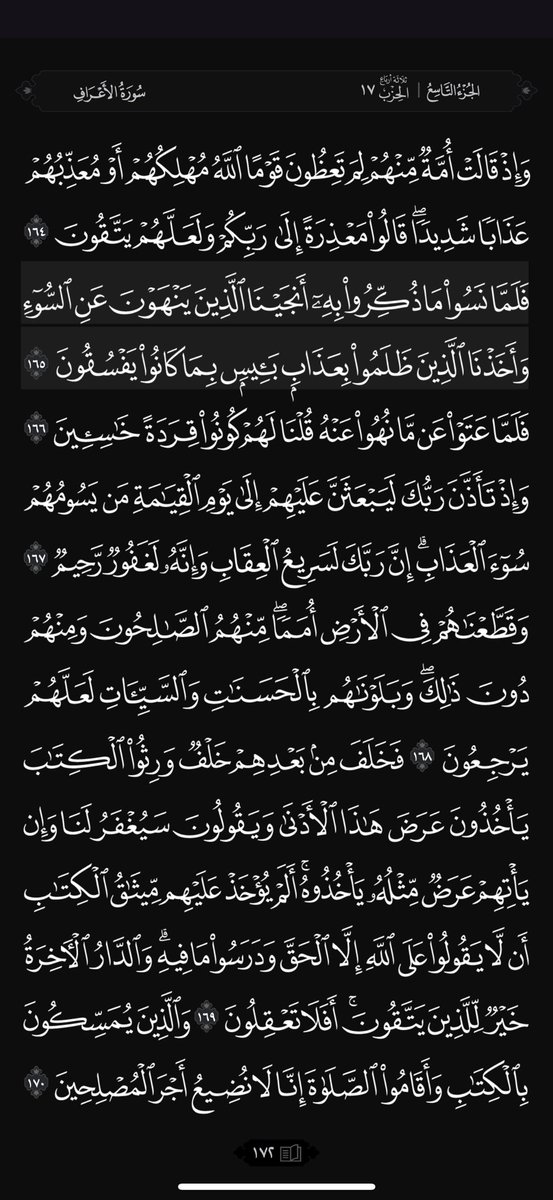 الجُزْءُ التَّاسِعُ | ثلاثة أرباع الحِزْب ١٧ سُورَةُ الأَعْرَافِ
وَإِذْ قَالَتْ أُمَّةٌ مِّنْهُمْ لِمَ تَعِظُونَ قَوْمًا اللَّهُ مُهْلِكُهُمْ أَوْ مُعَذِّبُهُمْ
عَذَابًا شَدِيدًاۖ قَالُوا۟ مَعْذِرَةً إِلَىٰ رَبِّكُمْ وَلَعَلَّهُمْ يَتَّقُونَ ١٦٤
فَلَمَّا نَسُوا۟ مَا ذُكِّرُوا۟ بِهِۦٓ أَنجَيْنَا ٱلَّذِينَ يَنْهَوْنَ عَنِ ٱلسُّوٓءِ
وَأَخَذْنَا ٱلَّذِينَ ظَلَمُوا۟ بِعَذَابٍۭ بَـِٔيسٍۭ بِمَا كَانُوا۟ يَفْسُقُونَ ١٦٥
فَلَمَّا عَتَوْا۟ عَن مَّا نُهُوا۟ عَنْهُ قُلْنَا لَهُمْ كُونُوا۟ قِرَدَةً خَـٰسِـِٔينَ ١٦٦
وَإِذْ تَأَذَّنَ رَبُّكَ لَيَبْعَثَنَّ عَلَيْهِمْ إِلَىٰ يَوْمِ ٱلْقِيَـٰمَةِ مَن يَسُومُهُمْ
سُوٓءَ ٱلْعَذَابِۗ إِنَّ رَبَّكَ لَسَرِيعُ ٱلْعِقَابِ وَإِنَّهُۥ لَغَفُورٌ رَّحِيمٌ ١٦٧
وَقَطَّعْنَـٰهُمْ فِى ٱلْأَرْضِ أُمَمًاۖ مِّنْهُمُ ٱلصَّـٰلِحُونَ وَمِنْهُمْ
دُونَ ذَٰلِكَۖ وَبَلَوْنَـٰهُم بِٱلْحَسَنَـٰتِ وَٱلسَّيِّـَٔاتِ لَعَلَّهُمْ
يَرْجِعُونَ ١٦٨ فَخَلَفَ مِنۢ بَعْدِهِمْ خَلْفٌ وَرِثُوا۟ ٱلْكِتَـٰبَ
يَأْخُذُونَ عَرَضَ هَـٰذَا ٱلْأَدْنَىٰ وَيَقُولُونَ سَيُغْفَرُ لَنَا وَإِن
يَأْتِهِمْ عَرَضٌ مِّثْلُهُۥ يَأْخُذُوهُۚ أَلَمْ يُؤْخَذْ عَلَيْهِم مِّيثَـٰقُ ٱلْكِتَـٰبِ
أَن لَّا يَقُولُوا۟ عَلَى ٱللَّهِ إِلَّا ٱلْحَقَّ وَدَرَسُوا۟ مَا فِيهِۗ وَٱلدَّارُ ٱلْـَٔاخِرَةُ
خَيْرٌ لِّلَّذِينَ يَتَّقُونَۚ أَفَلَا تَعْقِلُونَ ١٦٩ وَٱلَّذِينَ يُمَسِّكُونَ
بِٱلْكِتَـٰبِ وَأَقَامُوا۟ ٱلصَّلَوٰةَ إِنَّا لَا نُضِيعُ أَجْرَ ٱلْمُصْلِحِينَ ١٧٠
١٧٢